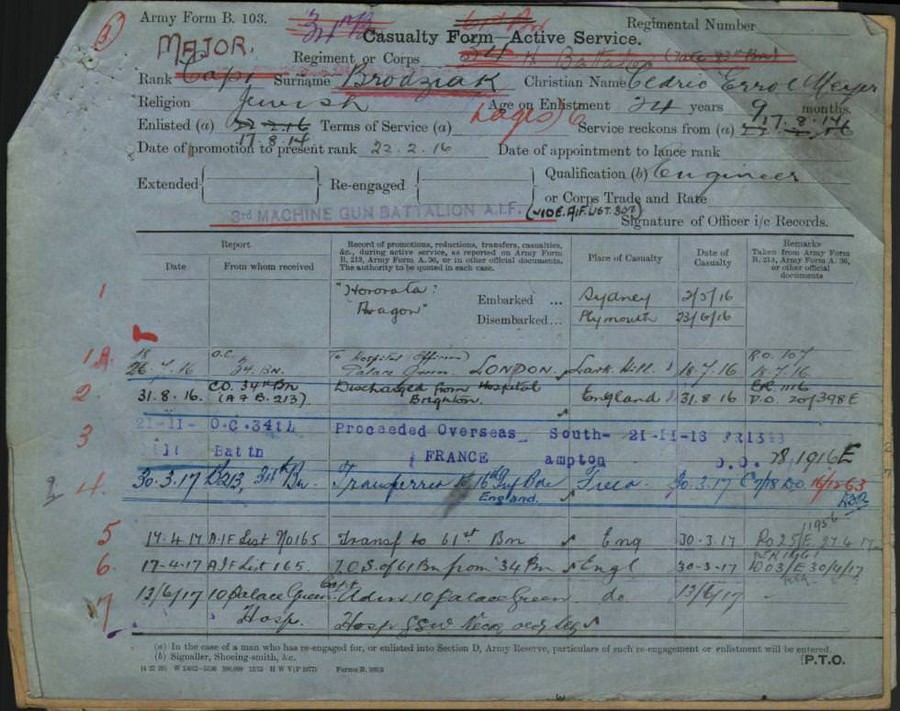 Army Form B. 103.
Regimental Number
Casualty Form—Active Service.
MAJOR.
Regiment or Corps 34th Battalion
Rank Capt Surname Brodziak Christian Name Cedric Errol Meyer
Religion Jewish Age on Enlistment 24 years 9 months.
Enlisted (a) 22.2.16 Terms of Service (a) Service reckons from (a) 17.8.14
17.8.14
Date of promotion to present rank 22.2.16 Date of appointment to lance rank
Extended Re-engaged Qualification (b) Engineer
or Corps Trade and Rate
3rd MACHINE GUN BATTALION A.I.F. (VIDE A.I.F. LIST 307)
Signature of Officer i/c Records.
Report
Date From whom received
Record of promotions, reductions, transfers, casualties, &c., during active service, as reported on Army Form B. 213, Army Form A. 36, or in other official documents. The authority to be quoted in each case.
Place of Casualty
Date of Casualty
Remarks Taken from Army Form B. 213, Army Form A. 36, or other official documents
1 "Hororata" Embarked ... Sydney 2/5/16
"Aragon" Disembarked... Plymouth 23/6/16
1A. 26.7.16 O.C. 34 Bn. To Hospital (Officers) Palace Green LONDON. Lark Hill 18.7.16
2. 31.8.16. CO. 34th Bn (A F B. 213) Discharged from Hospital Brighton. England 31.8.16 D.O. 20/398E
3 21-11- O.C. 34th Battn Proceeded Overseas FRANCE South-ampton 21-11-16
D.O. 78/1916E
4. 30.3.17 B213, 34th Bn. Transferred to 16th Inf Bde England. Field 30.3.17
5 17.4.17 A.I.F List No 165 Transf to 61st Bn Eng 30.3.17
6. 17-4-17 A.I.F List 165. T.O.S. of 61 Bn from 34 Bn Engl 30-3-17
7 13/6/17 10 Palace Green Hosp. Adm 10 Palace Green do 13/6/17
Hosp GSW Neck
(a) In the case of a man who has re-engaged for, or enlisted into Section D, Army Reserve, particulars of such re-engagement or enlistment will be entered.
(b) Signaller, Shoeing-smith, &c.
P.T.O.